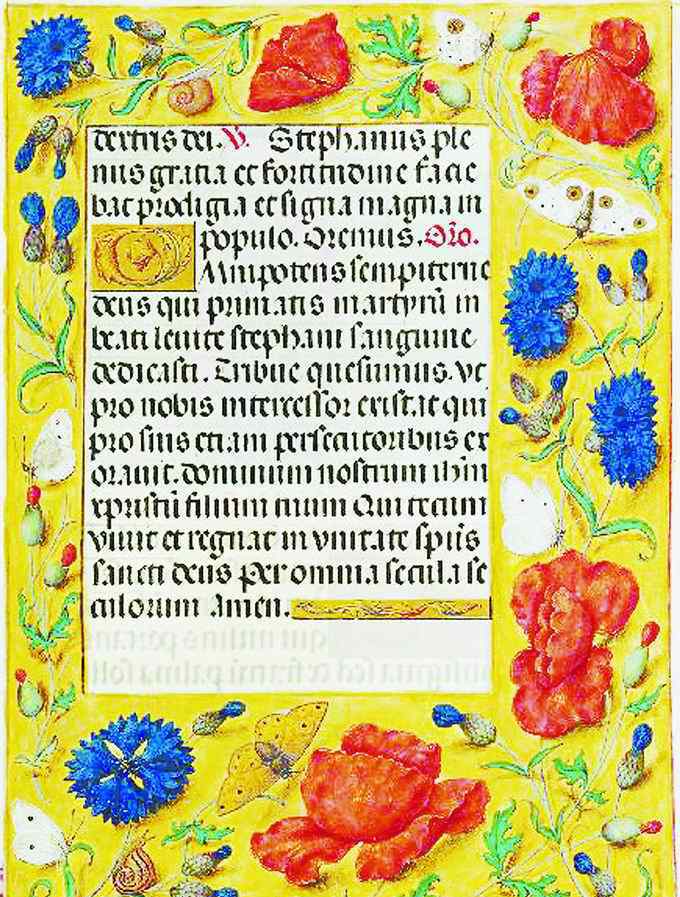 dextris dei. V. Stephanus ple
nus gratia et fortitudine facie
bat prodigia et signa magna in
populo. Oremus. Oro.
Omnipotens sempiterne
deus qui primatis martyrū in
beati levite stephani sanguine
dedicasti. Tribue quesumus. vt
pro nobis intercessor existat qui
pro suis etiam persecutoribus ex
orauit. dominum nostrum ihm
xpristū filium tuum Qui tecum
viuit et regnat in vnitate spūs
sancti deus Per omnia secula se
culorum Amen.